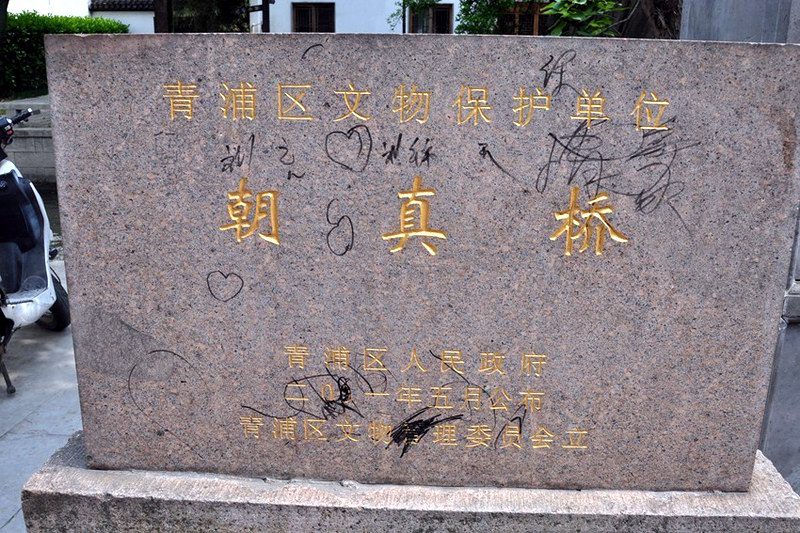 青浦区文物保护单位
朝真桥
青浦区人民政府
二〇〇一年五月公布
青浦区文物管理委员会立